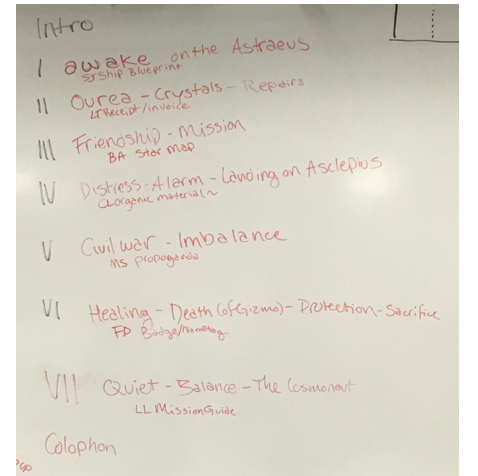 Intro
I awake on the Astraeus
SJ Ship Blueprint
II Ourea - Crystals - Repairs
LT Receipt/invoice
III Friendship - Mission
BA Star Map
IV Distress Alarm - Landing on Asclepius
CL organic material~
V Civil war - Imbalance
MS propaganda
VI Healing - Death (of Gizmo) - Protection - Sacrifice
FD Badge/Nametag
VII Quiet - Balance - The Cosmonaut
LL Mission Guide
Colophon